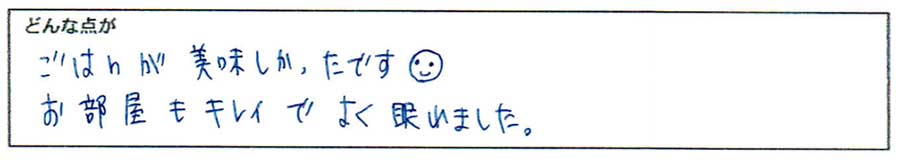 どんな点が
ごはんが美味しかったです☺
お部屋もキレイでよく眠れました。